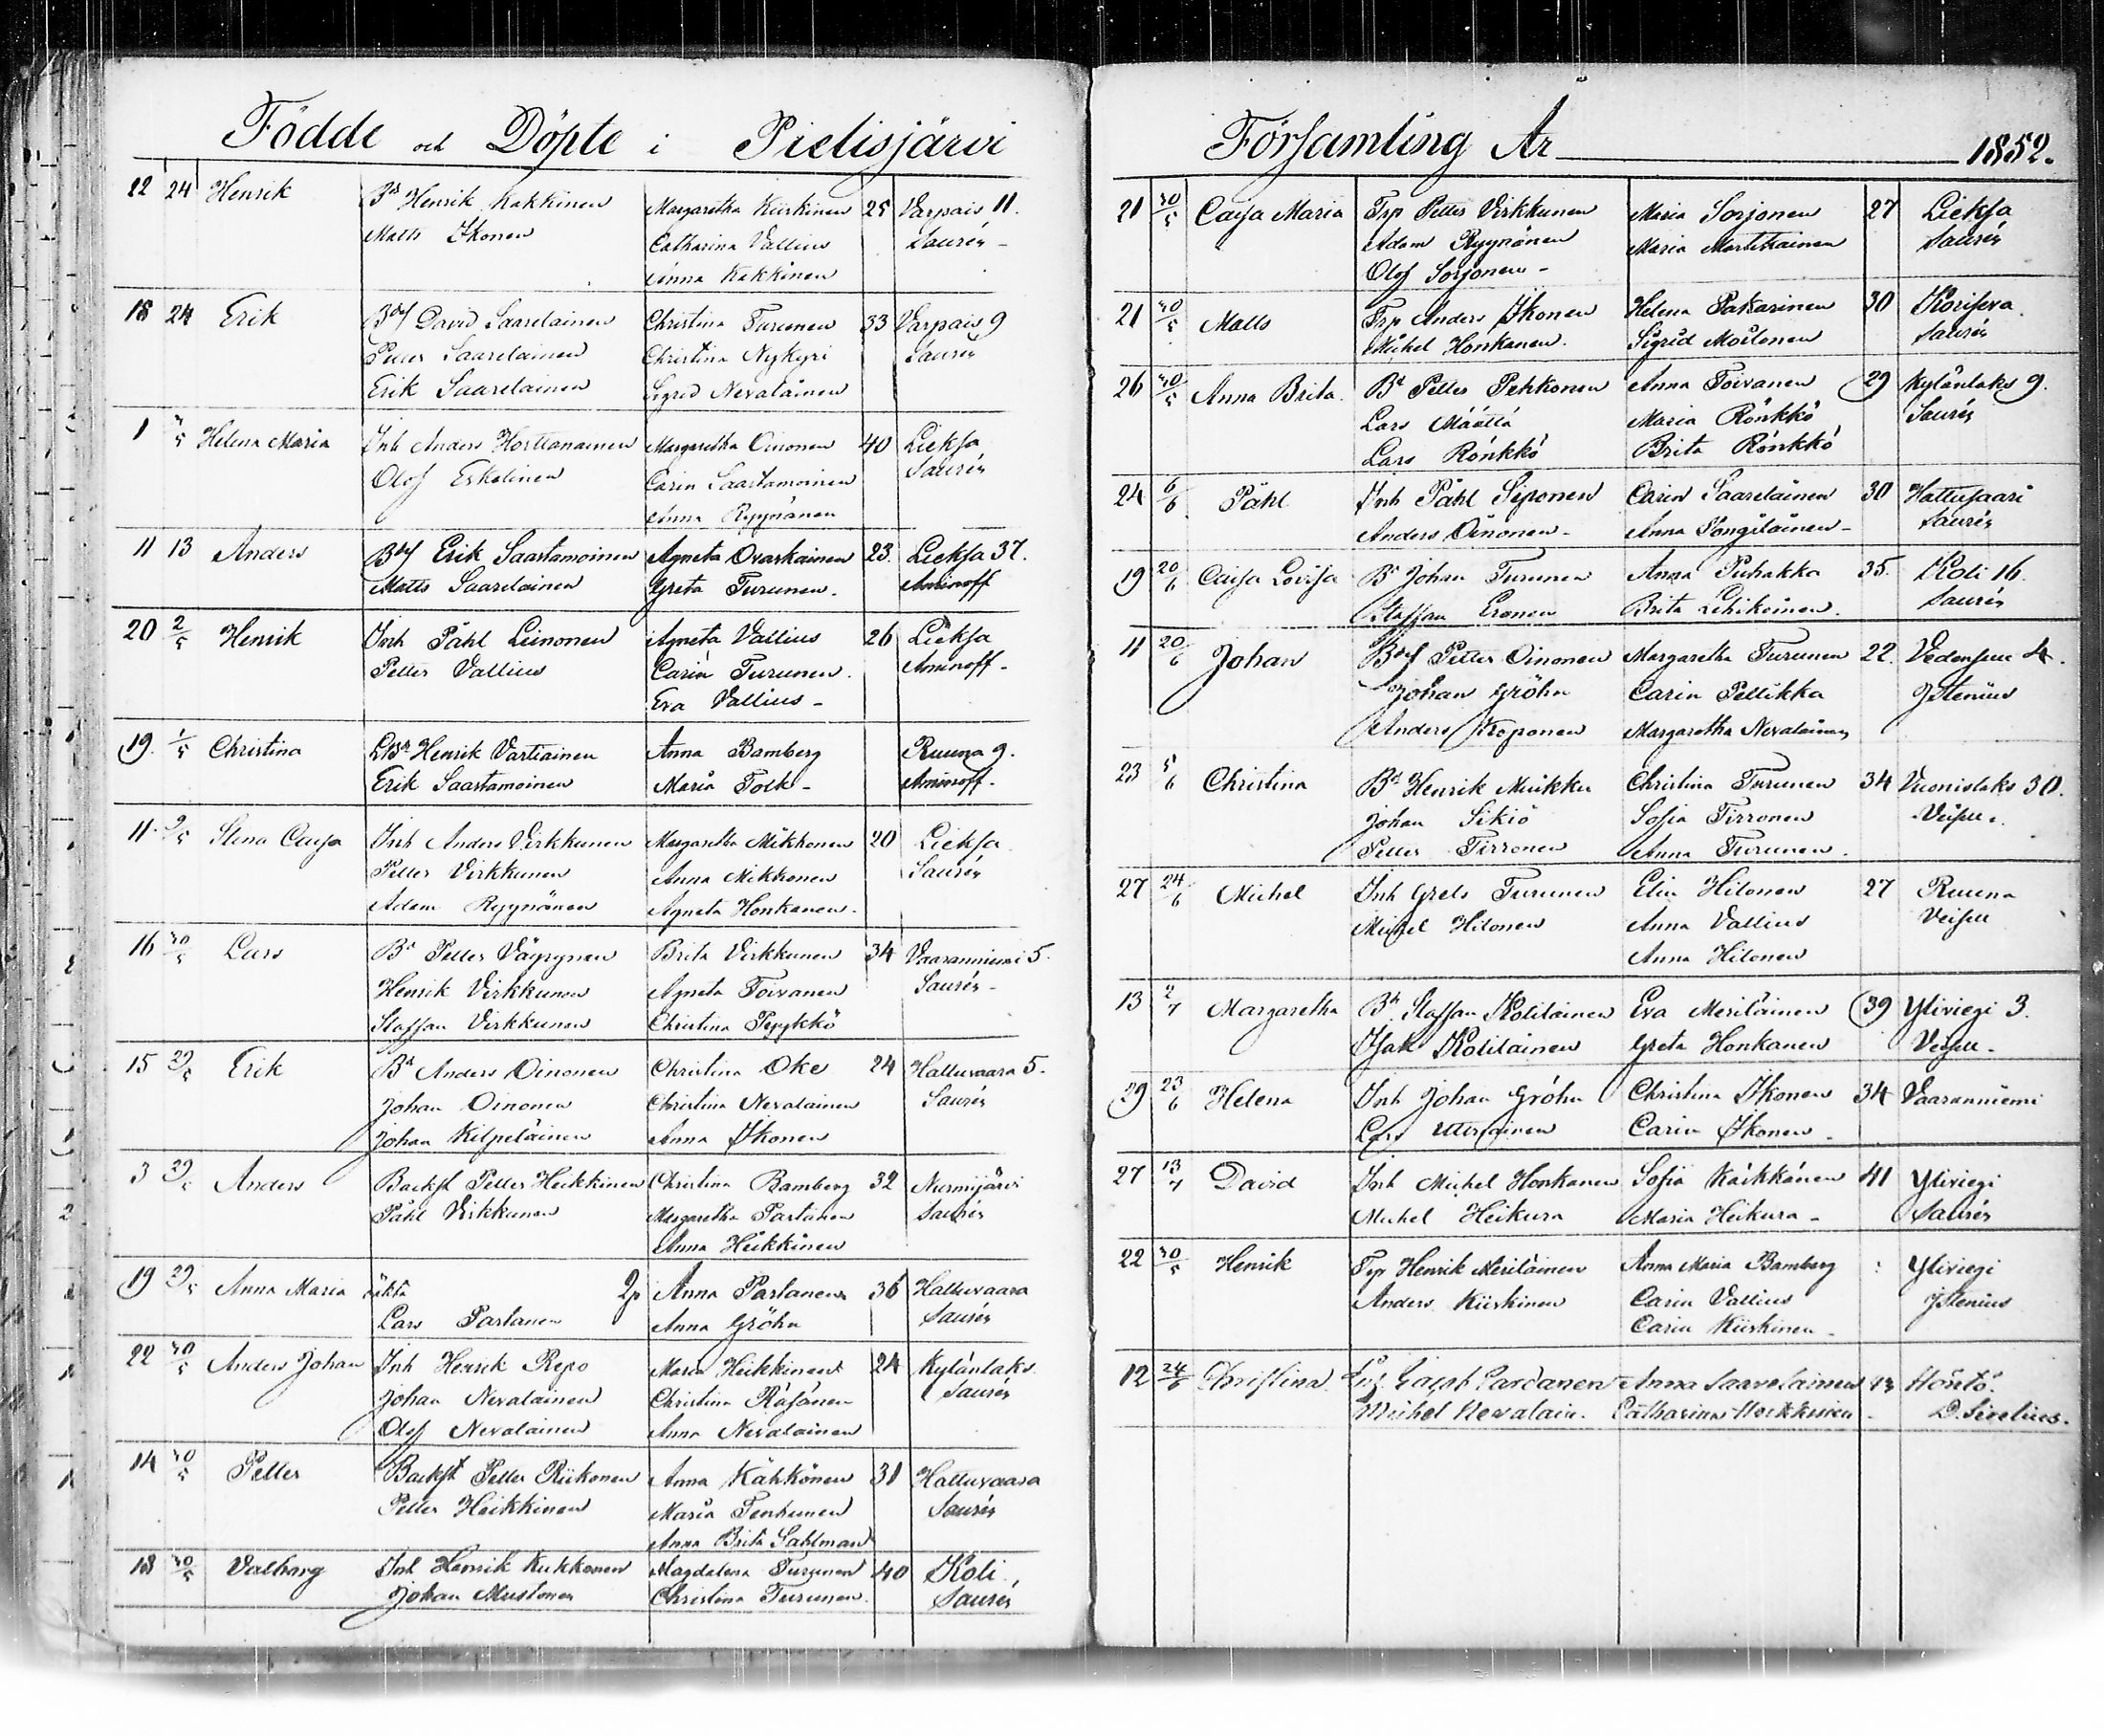 Födde och Döpte i Pielisjärvi
22 24 Henrik Bd Henrik Kakkinen Margaretha Kiiskinen 25 Varpais 11.
Matts Ikonen Catharina Vallius Saurén
Anna Kakkinen
18 24 Erik Bds David Saarelainen Christina Turunen 33 Varpais 9
Petter Saarelainen Christina Nykyri Saurén
Erik Saarelainen Sigrid Nevalainen
1 Helena Maria Inh Anders Horttanainen Margaretha Oinonen 40 Lieksa
Olof Eskelinen Carin Saastamoinen Saurén
Anna Ryynänen
11 13 Anders Bds Erik Saastamoinen Agneta Ovaskainen 23. Lieksa 37.
Matts Saarelainen Greta Turunen. Aminoff
20 2/5 Henrik Inh Påhl Leinonen Agneta Vallius 26 Lieksa
Petter Vallius Carin Turunen. Aminoff-
Eva Vallius-
19. 1/5 Christina LBd Henrik Vartiainen Anna Bamberg Ruuna 9.
Erik Saastamoinen Maria Tolk- Aminoff.
11. 9/5 Stina Caisa Inh Anders Virkkunen Margaretha Mikkonen 20 Lieksa
Petter Virkkunen Anna Mikkonen Saurén
Adam Ryynänen Agneta Honkanen.
16 30/5 Lars Bd Petter Väyrynen Brita Virkkunen 34 Vaaranniemi 5.
Henrik Virkkunen Agneta Toivanen Saurén-
Staffan Virkkunen Christina Pyykkö
15 29/5 Erik Bd Anders Oinonen Christina Oke 24 Hattuvaara 5.
Johan Oinonen Christina Nevalainen Saurén
Johan Kilpeläinen Anna Ikonen
3 29/5 Anders Backst Petter Heikkinen Christina Bamberg 32 Nurmijärvi
Påhl Virkkunen Margaretha Partanen Saurén
Anna Heikkinen
19 29/5 Anna Maria oäkta Anna Partanen 36 Hattuvaara
Lars Partanen Anna Gröhn Saurén
22 30/5 Anders Johan Inh Henrik Repo Maria Heikkinen 24 Kylänlaks
Johan Nevalainen Christina Räsänen Saurén
Olof Nevalainen Anna Nevalainen
14 30/5 Petter Backst Petter Riikonen Anna Kähkönen 31 Hattuvaara
Petter Heikkinen Maria Tenhunen Saurén
Anna Brita Sahlman
18 30/5 Valborg Inh Henrik Kukkonen Magdalena Turunen 40 Koli
Johan Mustonen Christina Turunen. Saurén
Församling År 1852.
21 30/5 Caisa Maria Trp Petter Virkkunen Maria Sorjonen 27 Lieksa
Adam Ryynänen Maria Martikainen Saurén
Olof Sorjonen-
21 30/5 Matts Trp Anders Ikonen Helena Pakarinen 30 Koriseva.
Michel Honkanen. Sigrid Moilonen Saurén
26 30/5 Anna Brita. Bd Petter Pehkonen Anna Toivanen 29 Kylänlaks 9.
Lars Määttä Maria Rönkkö Saurén
Lars Rönkkö Brita Rönkkö
24 6/6 Påhl Inh Påhl Siponen Carin Saarelainen 30 Hattusaari
Anders Oinonen- Anna Pongilainen- Saurén
19 20/6 Caisa Lovisa Bd Johan Turunen Anna Puhakka 35. Koli 16.
Staffan Eronen Brita Lehikoinen. Saurén
11 20/6 Johan Bds Petter Oinonen Margaretha Turunen 22. Vedensuu 4.
Johan Gröhn Carin Pellikka Jstenius
Anders Kroponen Margaretha Nevalainen
23 5/6 Christina Bd Henrik Muikku Christina Turunen 34 Vuonislaks 30.
Johan Sikiö Sofia Tirronen Veisell.
Petter Tirronen Anna Turunen.
27 24/6 Michel Inh Grels Turunen Elin Hilonen 27 Ruuna
Michel Hilonen Anna Vallius Veisell
Anna Hilonen
13 2/7 Margaretha Bd. Staffan Kolilainen Eva Meriläinen 39 Ylivieji 3.
Isak Kolilainen Greta Honkanen Veisell-
29 23/6 Helena Inh Johan Gröhn Christina Ikonen 34 Vaaranniemi
Lars Carin Ikonen-
27 13/7 David Inh Michel Honkanen Sofia Käikkänen 41 Ylivieji
Michel Heikura Maria Heikura- Saurén
22 30/5 Henrik Trp Henrik Meriläinen Anna Maria Bamberg : Ylivieji
Anders Kiiskinen Carin Vallius Jstenius
Carin Kiiskinen-
12 24/6 Christina. Partanen Anna Saarelainen 43 Höntö.
Michel Nevalain. Catharina D. Sirelius.